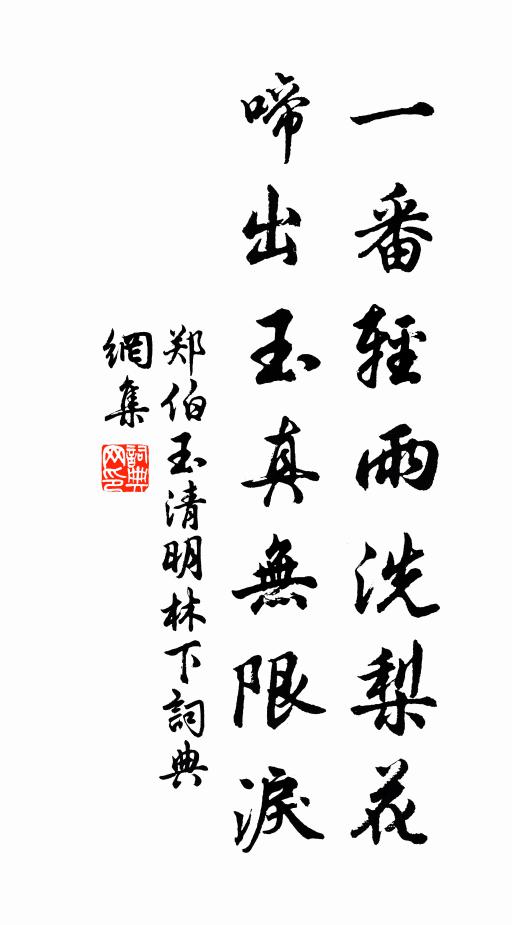 一番輕雨洗梨花
啼出玉真無限淚
郑伯玉清明林下詞典
網集
詞典
网印